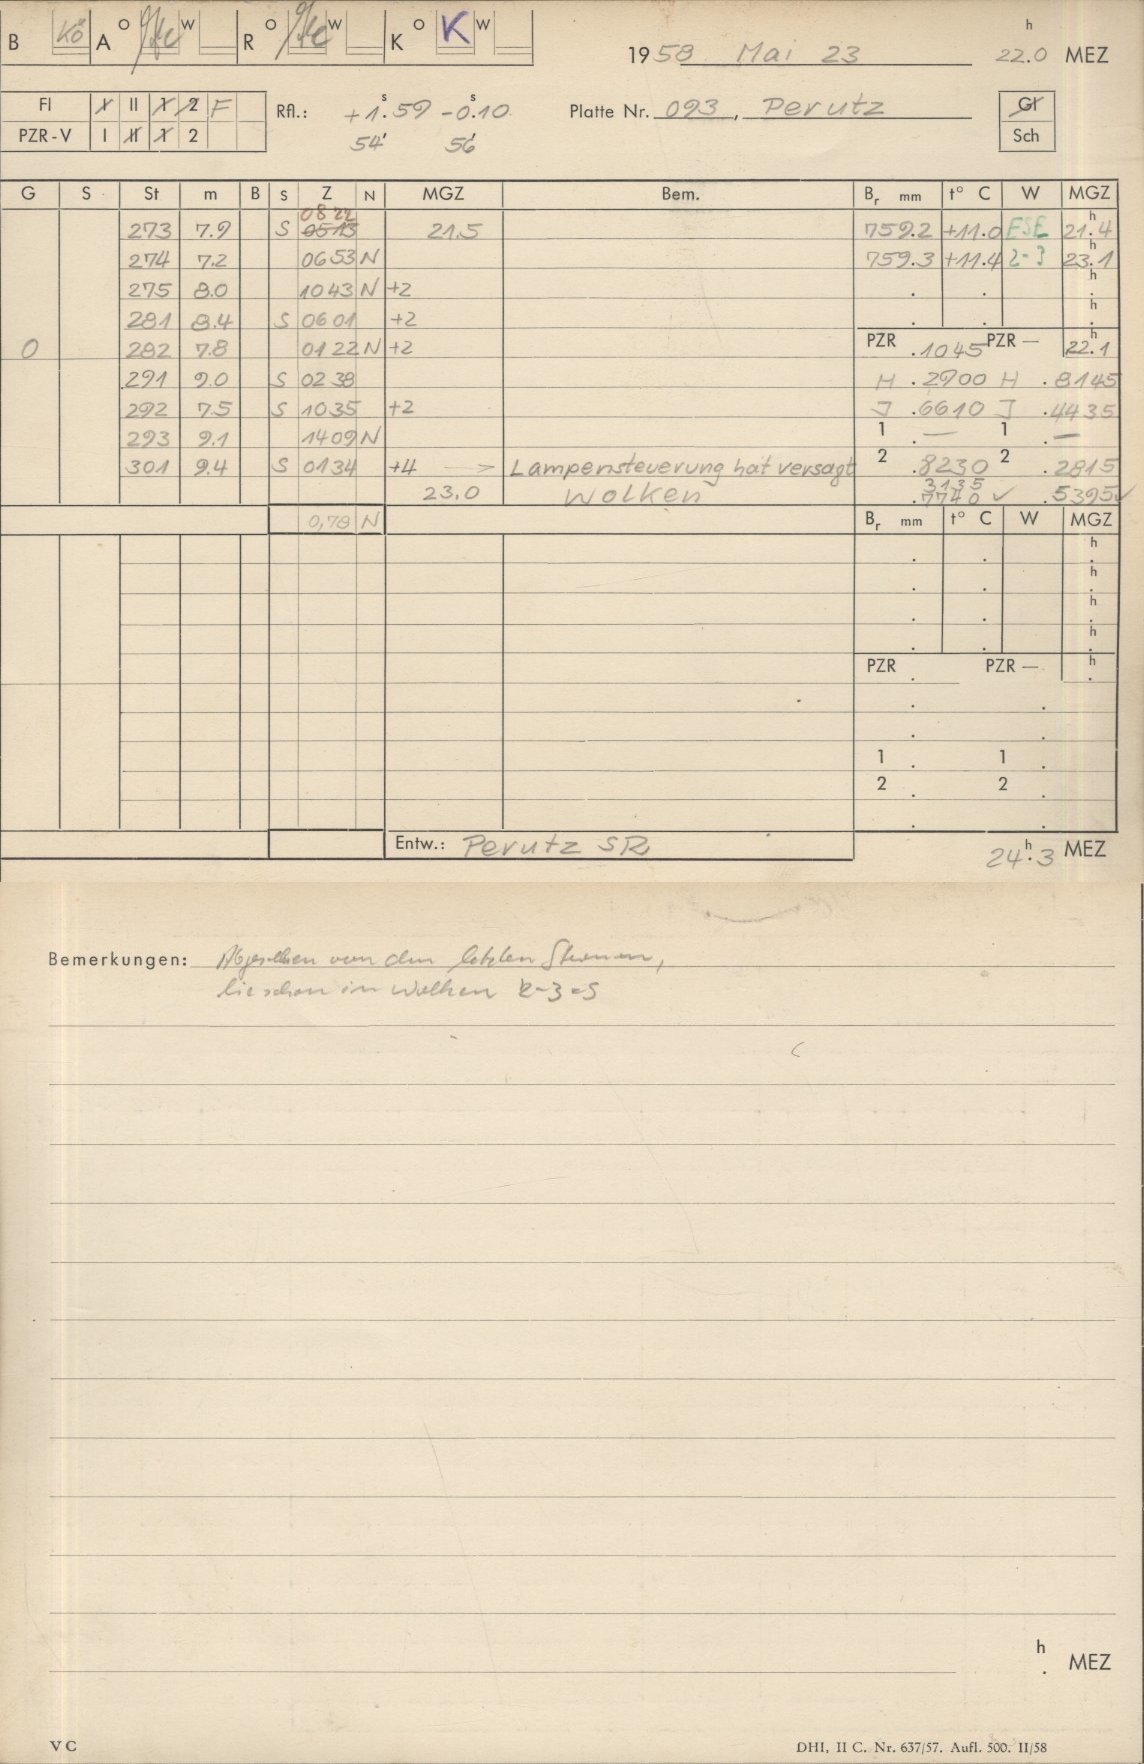 B Kö A O W R O W K O K W
1958 Mai 23 22.0 h MEZ
Fl I II 1 2 F
PZR-V I II 1 2
Rfl.: +1.59 s -0.10 s
54' 56'
Platte Nr. 093, Perutz
Gr
Sch
G S St m B S Z N MGZ Bem. Br mm t° C W MGZ
0822
273 7.9 S 0513 21.5 759.2 +11.0 ESE 21.4 h
274 7.2 0653 N 759.3 +11.4 2-3 23.1 h
275 8.0 1043 N +2 . . h
281 8.4 S 0601 +2 . . h
0 282 7.8 0122 N +2 PZR .1045 PZR — 22.1 h
291 9.0 S 0238 H .2900 H .8145
292 7.5 S 1035 +2 J .6610 J .4435
293 9.1 1409 N 1 . — 1 . —
301 9.4 S 0134 +4 —> Lampensteuerung hat versagt 2 .8230 2 .2815
3135
23.0 Wolken .7740 ✓ .5395 ✓
0,78 N Br mm t° C W MGZ
h
h
h
h
PZR . PZR — h
1 . 1 .
2 . 2 .
Entw.: Perutz SR
24.3 h MEZ
Bemerkungen: Abgesehen von den letzten Sternen,
die schon in Wolken 2-3=S
h
. MEZ
V C
DHI, II C. Nr. 637/57. Aufl. 500. II/58